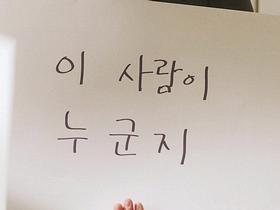 이 사람이
누군지